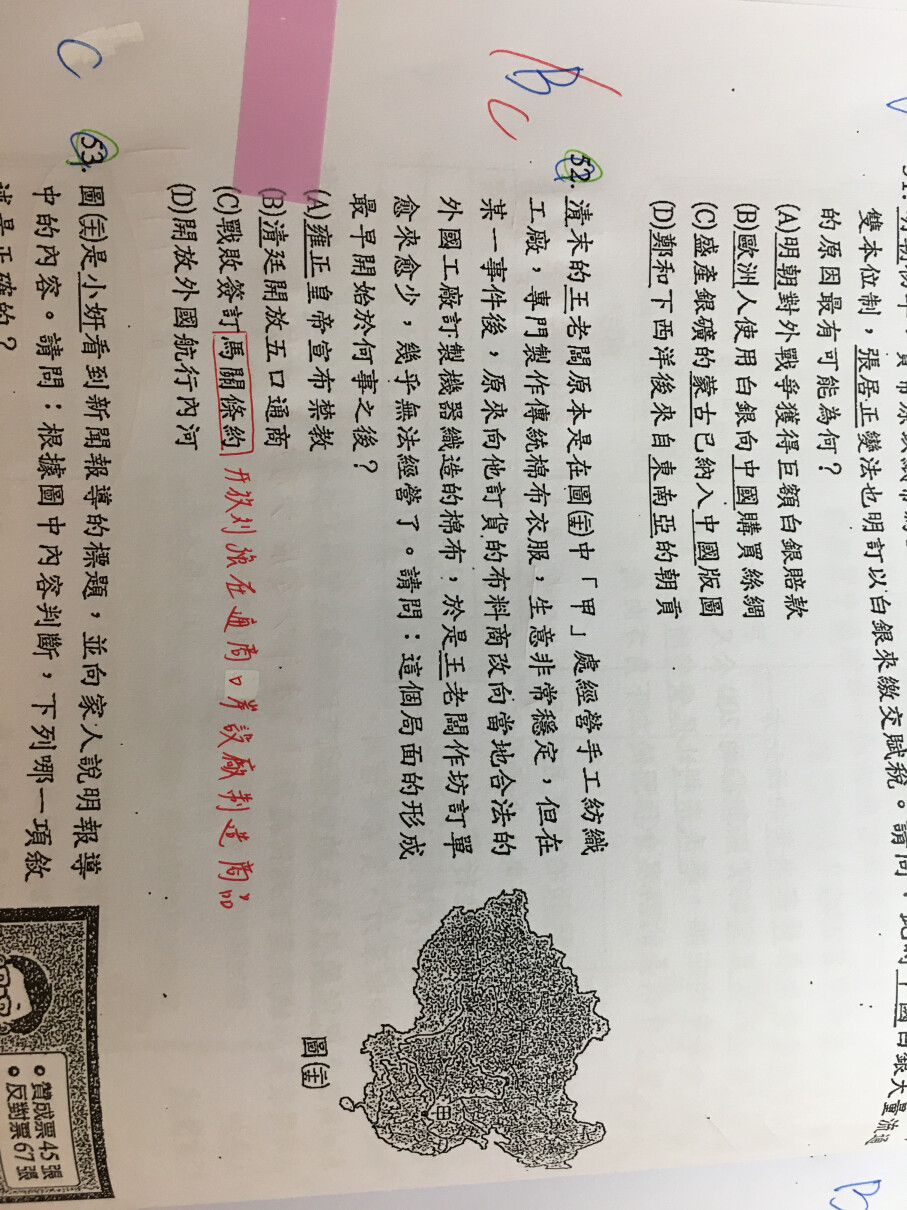 雙本位制，張居正變法也明訂以白銀來繳交賦稅。請問：此時中國白銀大量流通
的原因最有可能為何？
(A)明朝對外戰爭獲得巨額白銀賠款
(B)歐洲人使用白銀向中國購買絲綢
(C)盛產銀礦的蒙古已納入中國版圖
(D)鄭和下西洋後來自東南亞的朝貢
B
C
52.清末的王老闆原本是在圖(十二)中「甲」處經營手工紡織
工廠，專門製作傳統棉布衣服，生意非常穩定，但在
某一事件後，原來向他訂貨的布料商改向當地合法的
外國工廠訂製機器織造的棉布，於是王老闆作坊訂單
愈來愈少，幾乎無法經營了。請問：這個局面的形成
最早開始於何事之後？
(A)雍正皇帝宣布禁教
(B)清廷開放五口通商
(C)戰敗簽訂馬關條約 開放列強在通商口岸設廠製造商品
(D)開放外國航行內河
甲
圖(十二)
C
53.圖(十三)是小妍看到新聞報導的標題，並向家人說明報導
中的內容。請問：根據圖中內容判斷，下列哪一項敘
述是正確的？
贊成票45張
反對票67張
B